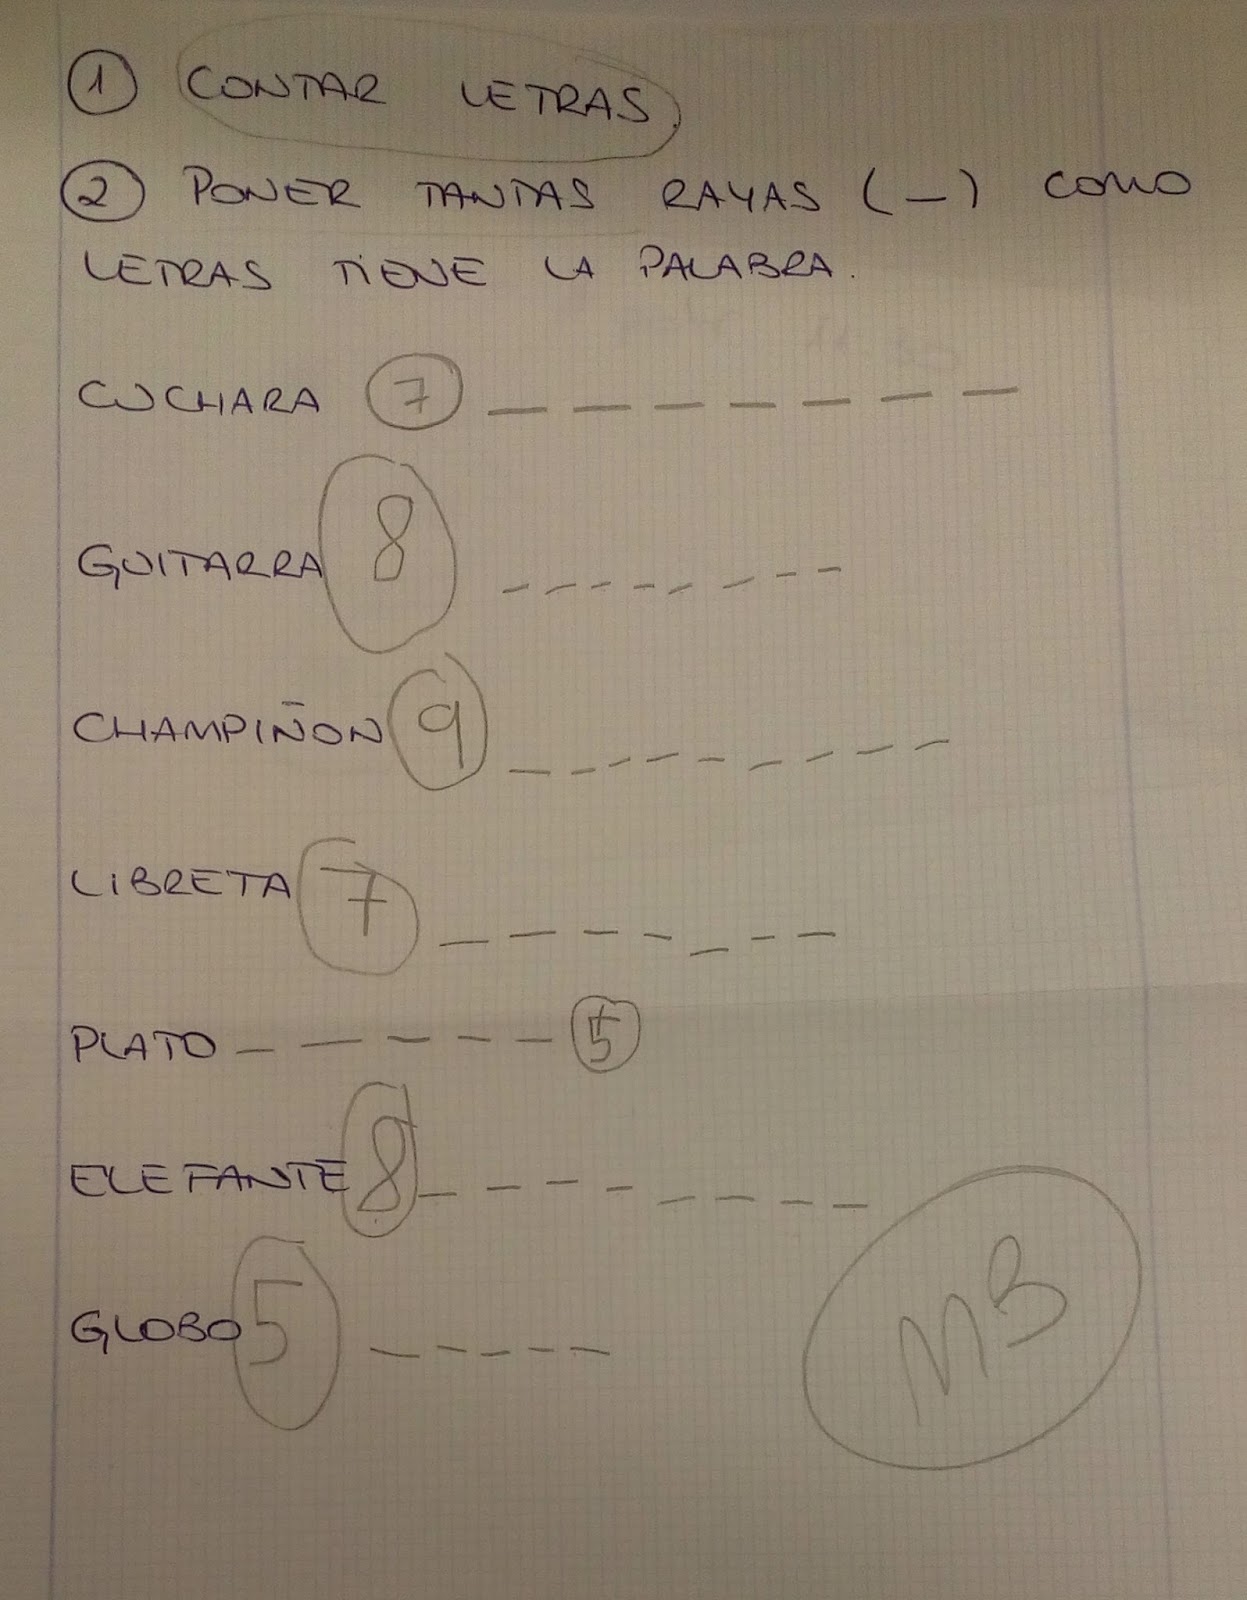 1 CONTAR LETRAS
2 PONER TANTAS RAYAS (_) COMO
LETRAS TIENE LA PALABRA.
CUCHARA 7 _ _ _ _ _ _ _
GUITARRA 8 _ _ _ _ _ _ _ _
CHAMPIÑON 9 _ _ _ _ _ _ _ _ _
LIBRETA 7 _ _ _ _ _ _ _
PLATO _ _ _ _ _ 5
ELEFANTE 8 _ _ _ _ _ _ _ _
GLOBO 5 _ _ _ _ _
MB